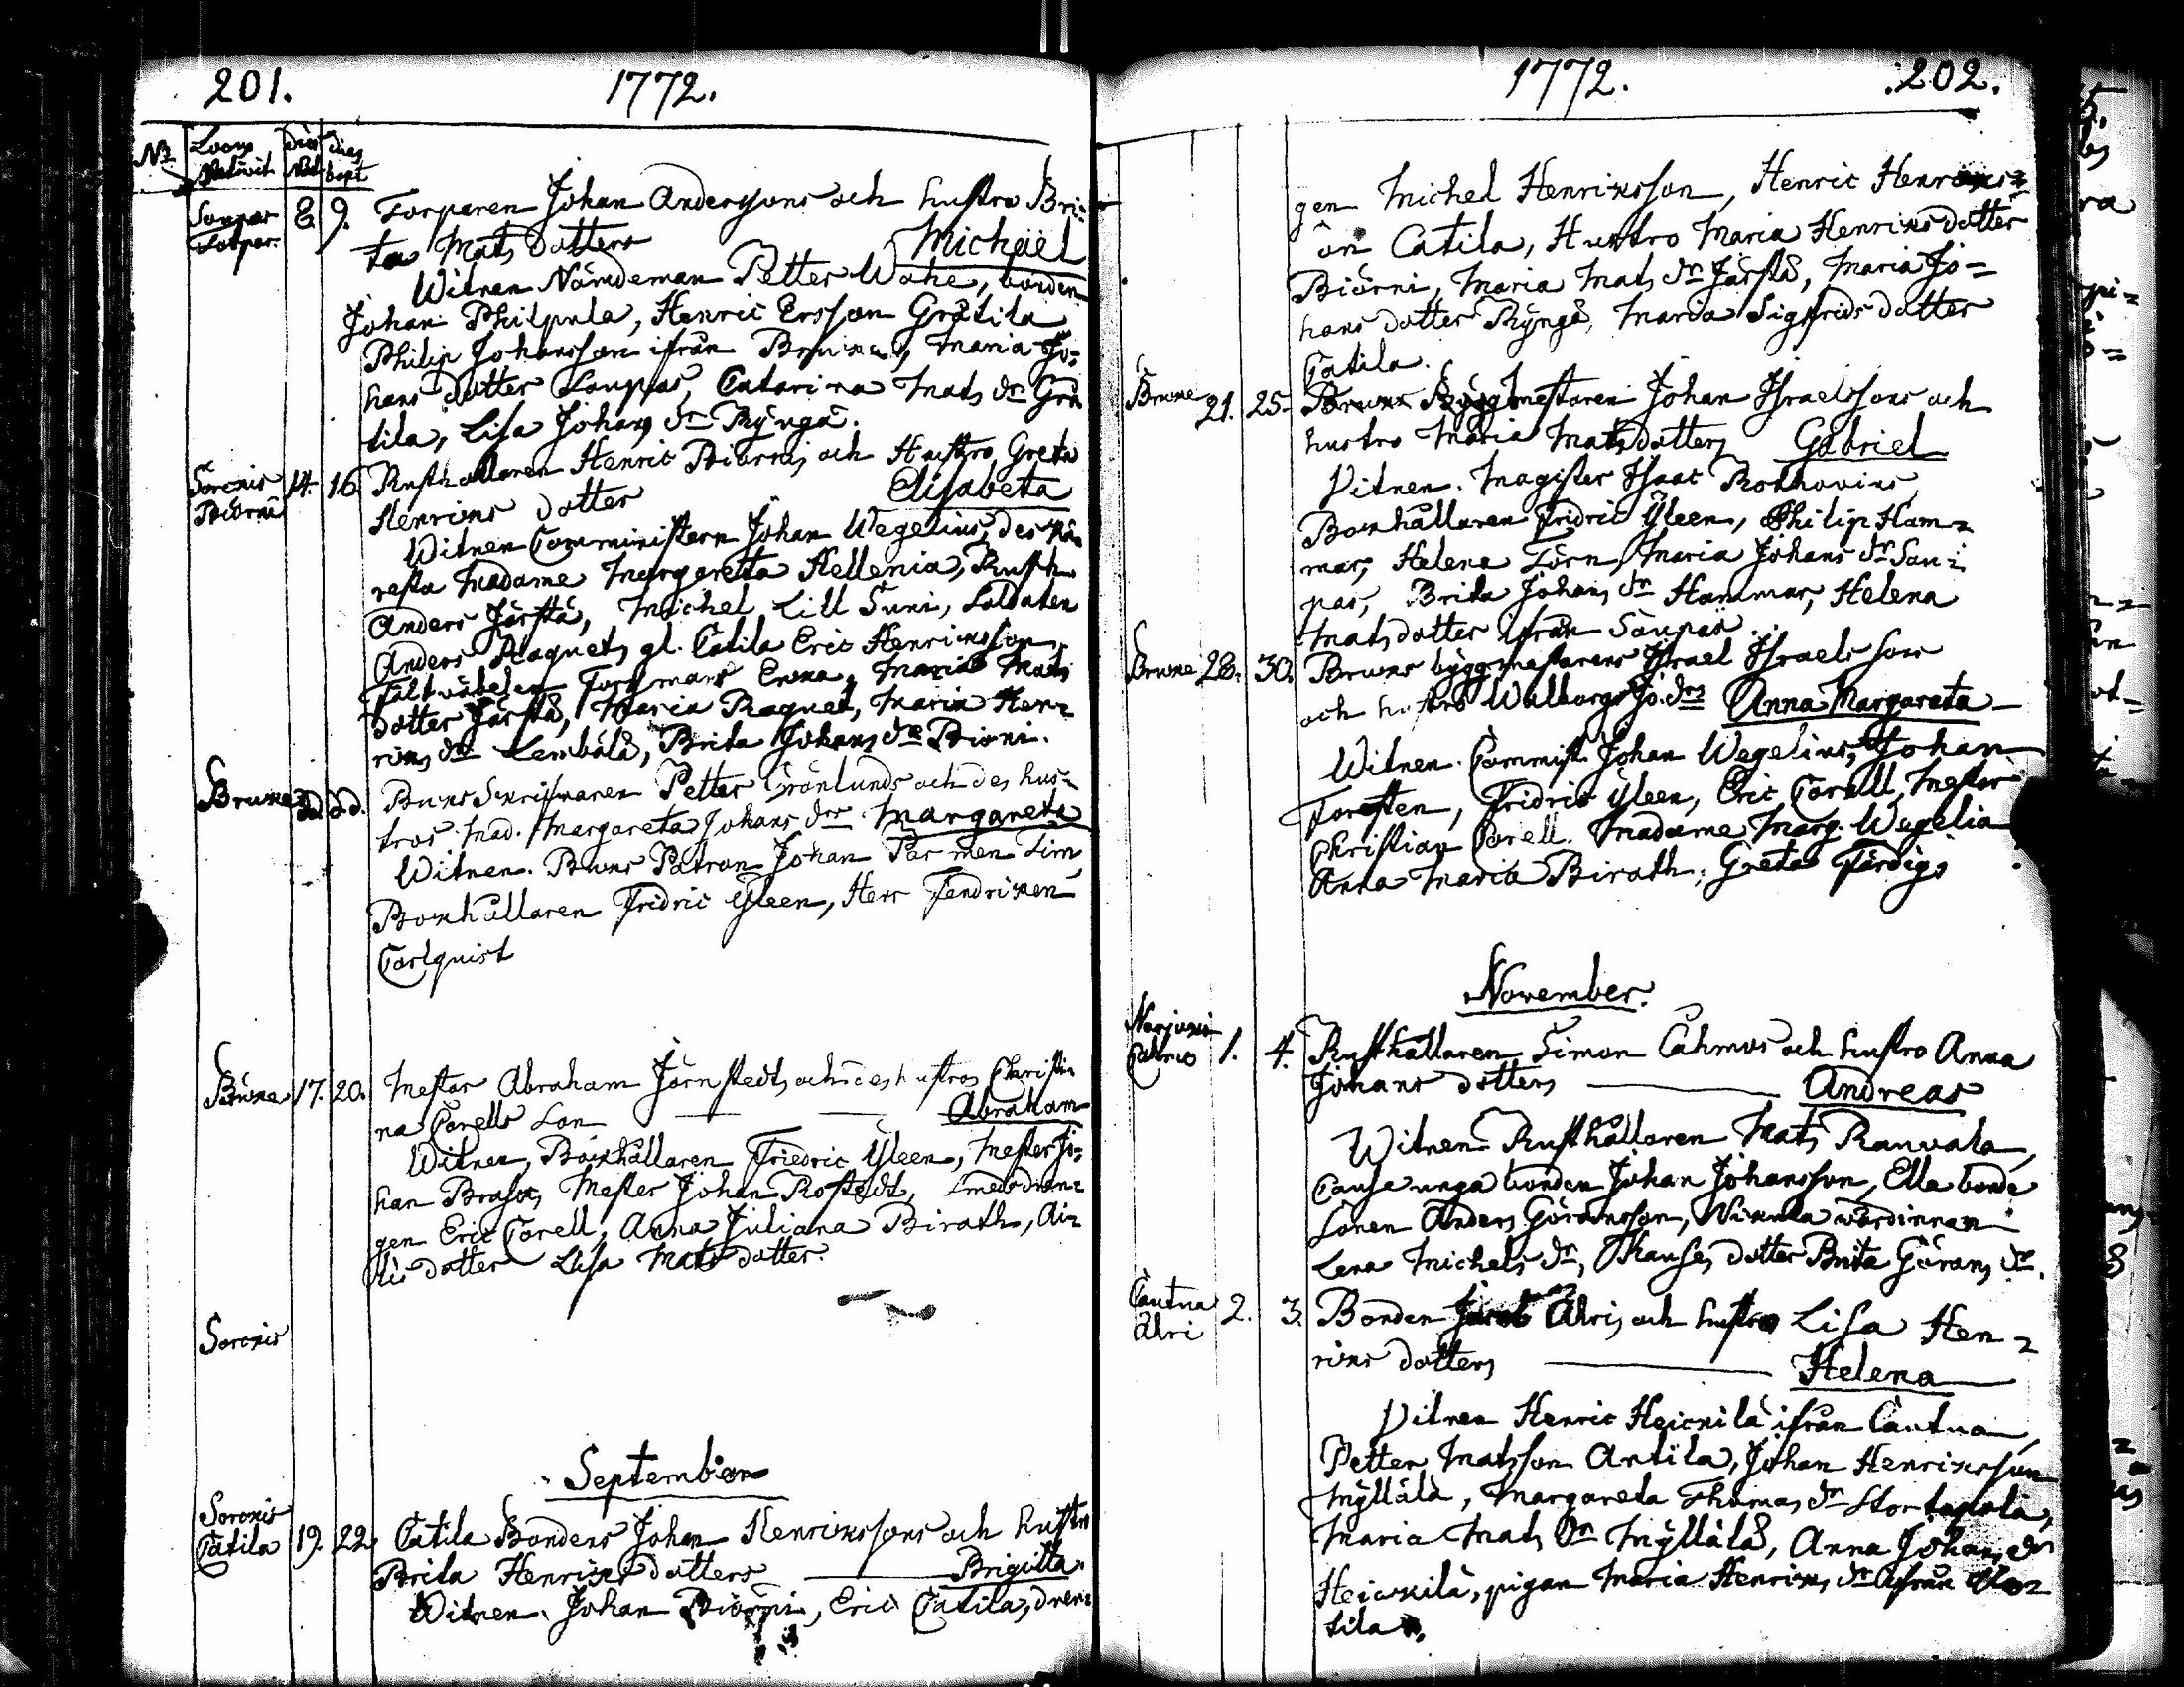 201. 1772.
No Locus Nativit dies Nat dies bapt
Saupas Torpar. 8. 9. Torparen Johan Anderssons och hustro Bri-
ta Mats dotters Michäel
Witnen Nämdeman Petter Wähe, bonden
Johan Philpula, Henric Ersson Grätila
Philip Johansson ifrån Bruket, Maria Jo-
hans dotter Saupas, Catarina Mats dr Grä
tila, Lisa Johans dr Rÿngä.
Sorexis Biörni 14. 16. Rusthollaren Henric Biörnis och Hustro Greta
Henrixs dotter Elisabeta
Witnen Comministern Johan Wegelius, des kä
resta Madame Margareta Hellenia, Rusth.
Anders Järstå, Michel Lill Suni, Soldaten
Anders Raquets gl. Catila Eric Henricsson,
Fältväbelen Forsmans Enka, Maria Mats
dotter Järstå, Maria Raquet, Maria Hen-
rixs dr Lembälä, Brita Johans dr Biöni.
Bruxe dd. dd. Bruxs Skrifwaren Petter Grönlunds och des hus-
tros Mad. Margareta Johans drs Margareta
Witnen. Bruxs Patron Johan Par men Sim,
Boxhållaren Fridric Yleen, Herr Fendrixen
Carlquist
Bruxe 17. 20. Mester Abraham Järnstedts och des hustros Christi-
na Corells Son Abraham
Witnen, Boxhållaren Friedric Yleen, Mester Jo-
han Brase, Mester Johan Rostedt, Smeddrän-
gen Eric Corell, Anna Juliana Birath, Ai-
lis dotter Lisa Mats dotter.
Sorexis
September
Sorexis Catila 19. 22. Catila Bondens Johan Henrixssons och hustro
Brita Henrixs dotters Brigitta
Witnen. Johan Biörni, Eric Catila, dren-
1772. 202.
gen Michel Henrixsson, Henric Henrixs-
on Catila, Hustro Maria Henrixs dotter
Biörni, Maria Mats dr Järstå, Maria Jo-
hans dotter Rÿngä, Maria Sigfrids dotter
Catila.
Bruxe 21. 25. Bruxs Byggmestaren Johan Israelssons och
hustro Maria Matsdotters Gabriel
Vitnen. Magister Isaac Rothovius,
Boxhållaren Fridric Yleen, Philip Ham-
mar, Helena Törn, Maria Johans dr Sau-
pas, Brita Johans dr Hammar, Helena
Mats dotter ifrån Saupas.
Bruxe 28. 30. Bruxs byggmestarens Israel Israels son
och hustro Walborgs Jo. drs Anna Margareta
Witnen. Commist. Johan Wegelius, Johan
Forsten, Fridric Yleen, Eric Corell, Mester
Christian Corell. Madame Marg. Wegelia
Anna Maria Birath, Greta Färdig.
November.
Narjoxi Cahmo 1. 4. Rusthållaren Simon Cahmos och hustro Anna
Johans dotters Andreas
Witnen Rusthållaren Mats Ranvala,
Cause unga bonden Johan Johansson, Ella bonde
Sonen Anders Göransson, Nixula wärdinnan
Lena Michels dr, Kauses dotter Brita Görans dr.
Cautua Ahri 2. 3. Bonden Jacob Ahris och hustro Lisa Hen-
rixs dotters Helena
Vitnen Henric Heickilä ifrån Cautua,
Petter Matsson Antila, Johan Henrixsson
Mÿllälä, Margareta Thomas dr Stortapala,
Maria Mats Dr Mÿllälä, Anna Johans dr
Heickilä, pigan Maria Henrixs dr ifrån
tila.